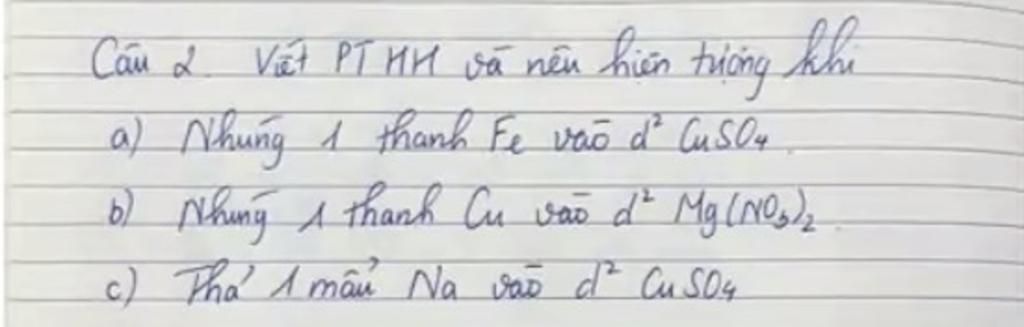 Câu 2. Viết PTHH và nêu hiện tượng khi
a) Nhúng 1 thanh Fe vào d² CuSO₄.
b) Nhúng 1 thanh Cu vào d² Mg(NO₃)₂.
c) Thả 1 mẩu Na vào d² CuSO₄